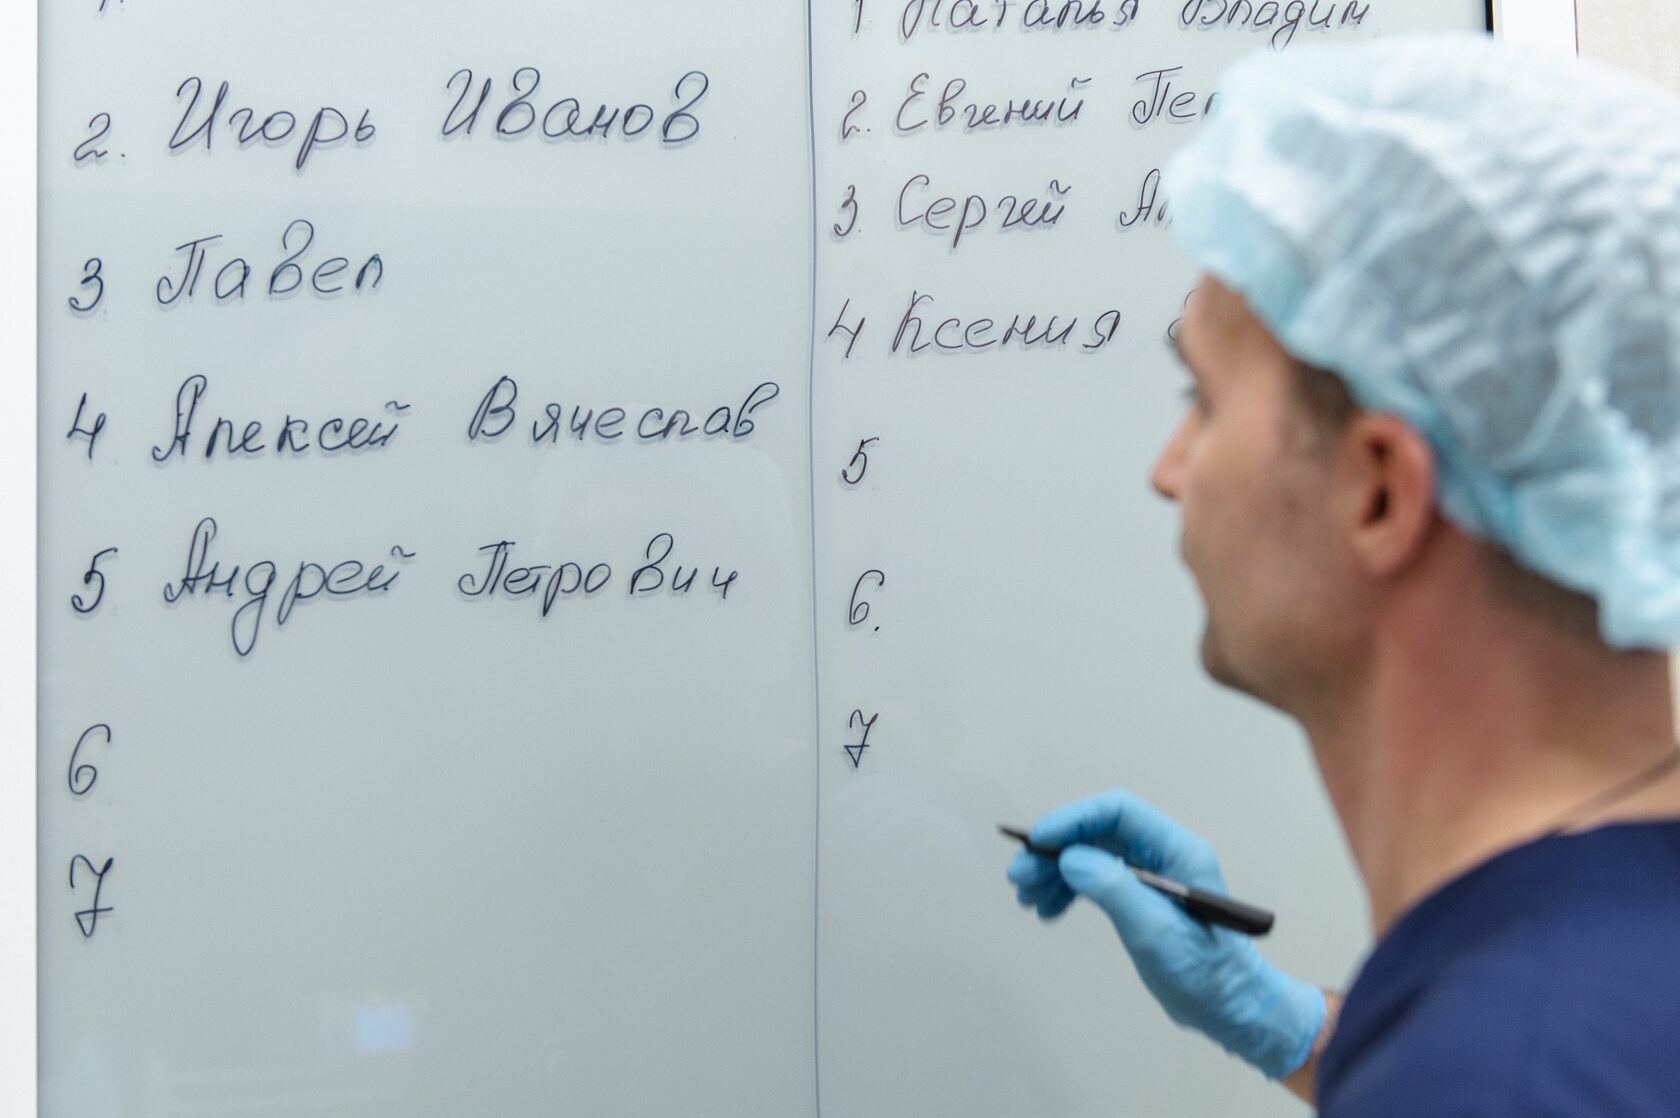 1.
2. Игорь Иванов
3. Павел
4 Алексей Вячеслав
5 Андрей Петрович
6
7
1 Наталья Владим
2. Евгений
3. Сергей
4 Ксения
5
6.
7